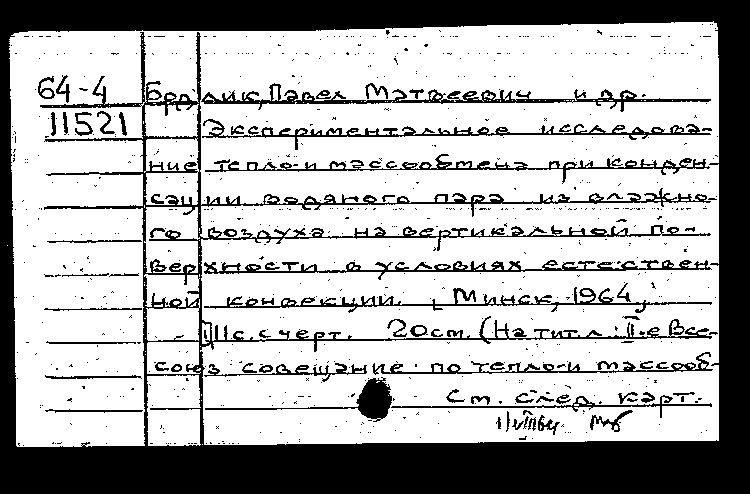 64-4 Брдлик, Павел Матвеевич и др.
11521 Экспериментальное исследова-
ние тепло-и массообмена при конден-
сации водяного пара из влажно-
го воздуха на вертикальной по-
верхности в условиях естествен-
ной конвекции. [Минск, 1964]
11с. с черт. 20 см. (На тит. л.: II-е Все-
союз совещание по тепло-и массооб-
См. след. карт.